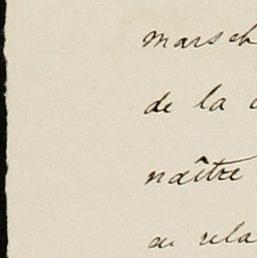 marsch
de la
naître
au rela